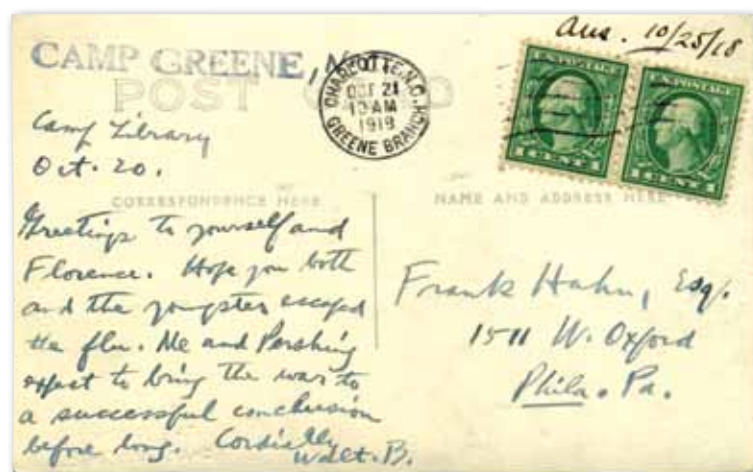 Ans. 10/25/18
CAMP GREENE, N.C.
POST CARD
CHARLOTTE, N.C.
OCT 21
10 AM
1918
GREENE BRANCH
U.S. POSTAGE
1 CENT 1
U.S. POSTAGE
1 CENT 1
Camp Library
Oct. 20.
CORRESPONDENCE HERE
NAME AND ADDRESS HERE
Greetings to yourself and
Florence. Hope you both
and the youngster escaped
the flu. Me and Pershing
expect to bring the war to
a successful conclusion
before long. Cordially
Walt. B.
Frank Hahn, Esq.
1511 W. Oxford
Phila. Pa.